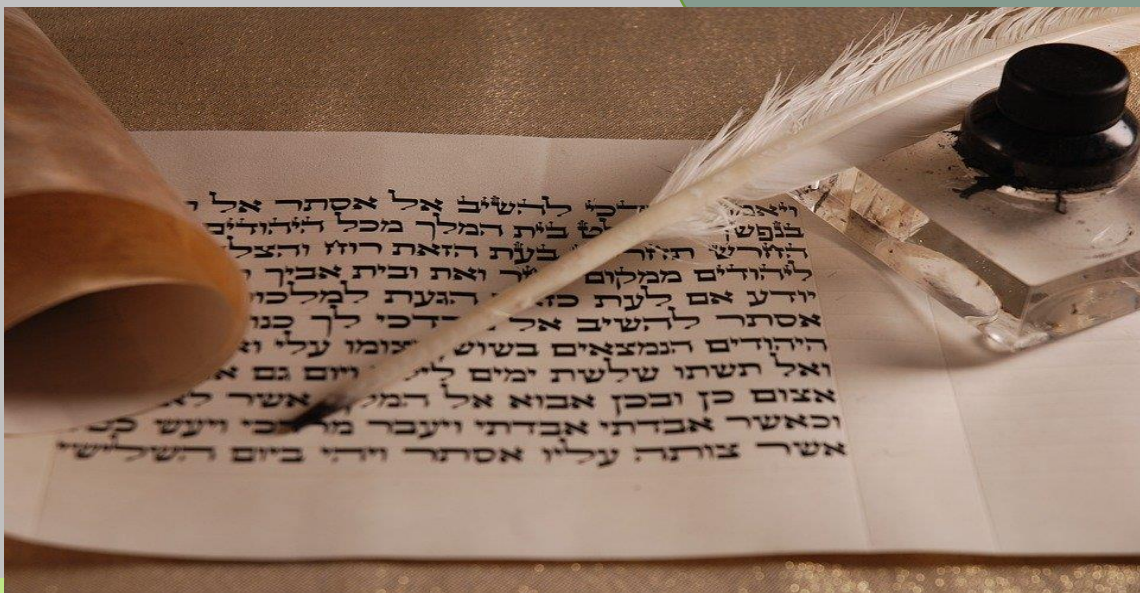 להשיב אל אסתר אל
בית המלך מכל היהודים
החרש בעת הזאת רוח
ליהודים ממקום ואת ובית אביך
יודע אם לעת הגעת
אסתר להשיב אל לך
היהודים הנמצאים בשושן וצומו עלי
ואל תשתו שלשת ימים ויום גם
אצום כן ובכן אבוא אל המלך אשר
וכאשר אבדתי אבדתי ויעבר מרדכי ויעש
אשר צותה עליו אסתר ויהי ביום השלישי